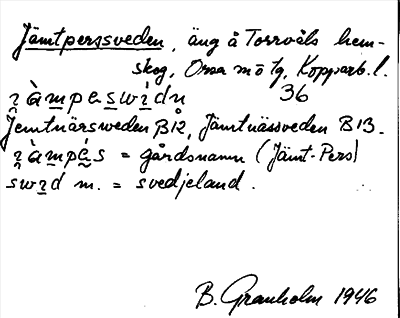 Jämtperssveden, äng å Torrvåls hem-
skog, Orsa m o tg, Kopparb. l.
ʒàmpeswìdn 36
Jemtnärsweden B12, Jämtnässveden B13.
ʒàmpé̱s = gårdsnamn (Jämt-Pers)
swid m. = svedjeland.
B. Granholm 1946